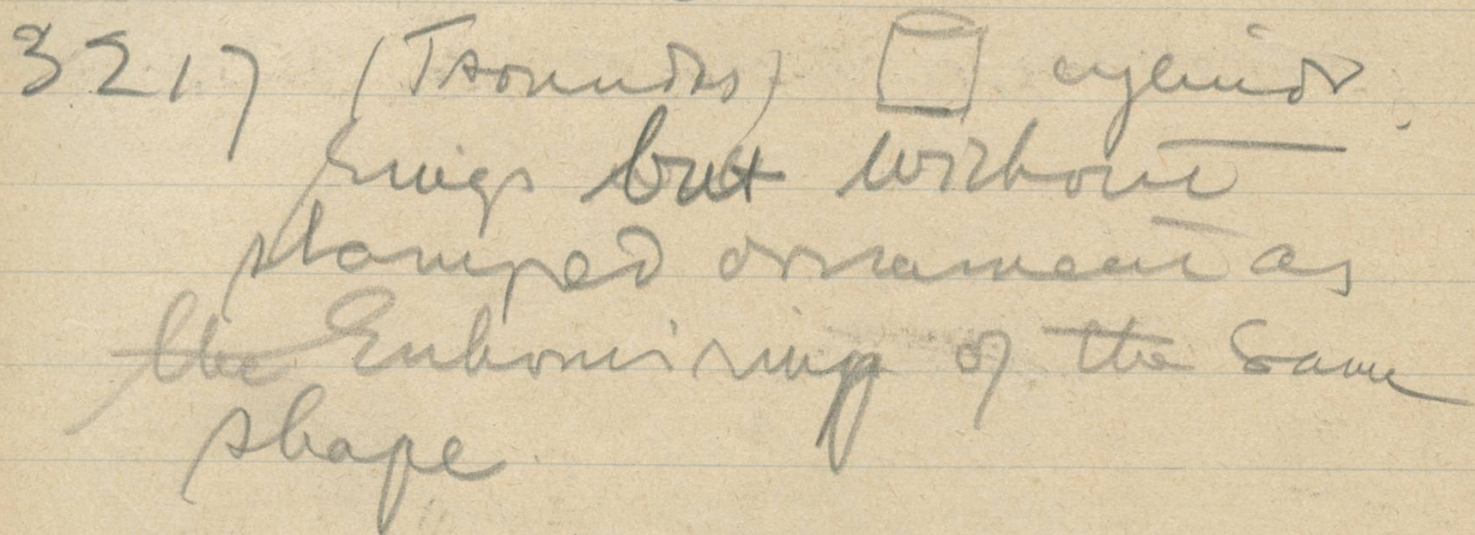 3217 (Tsountas) cylindr.
rings but without
stamped ornament as
the Enkomi rings of the same
shape.